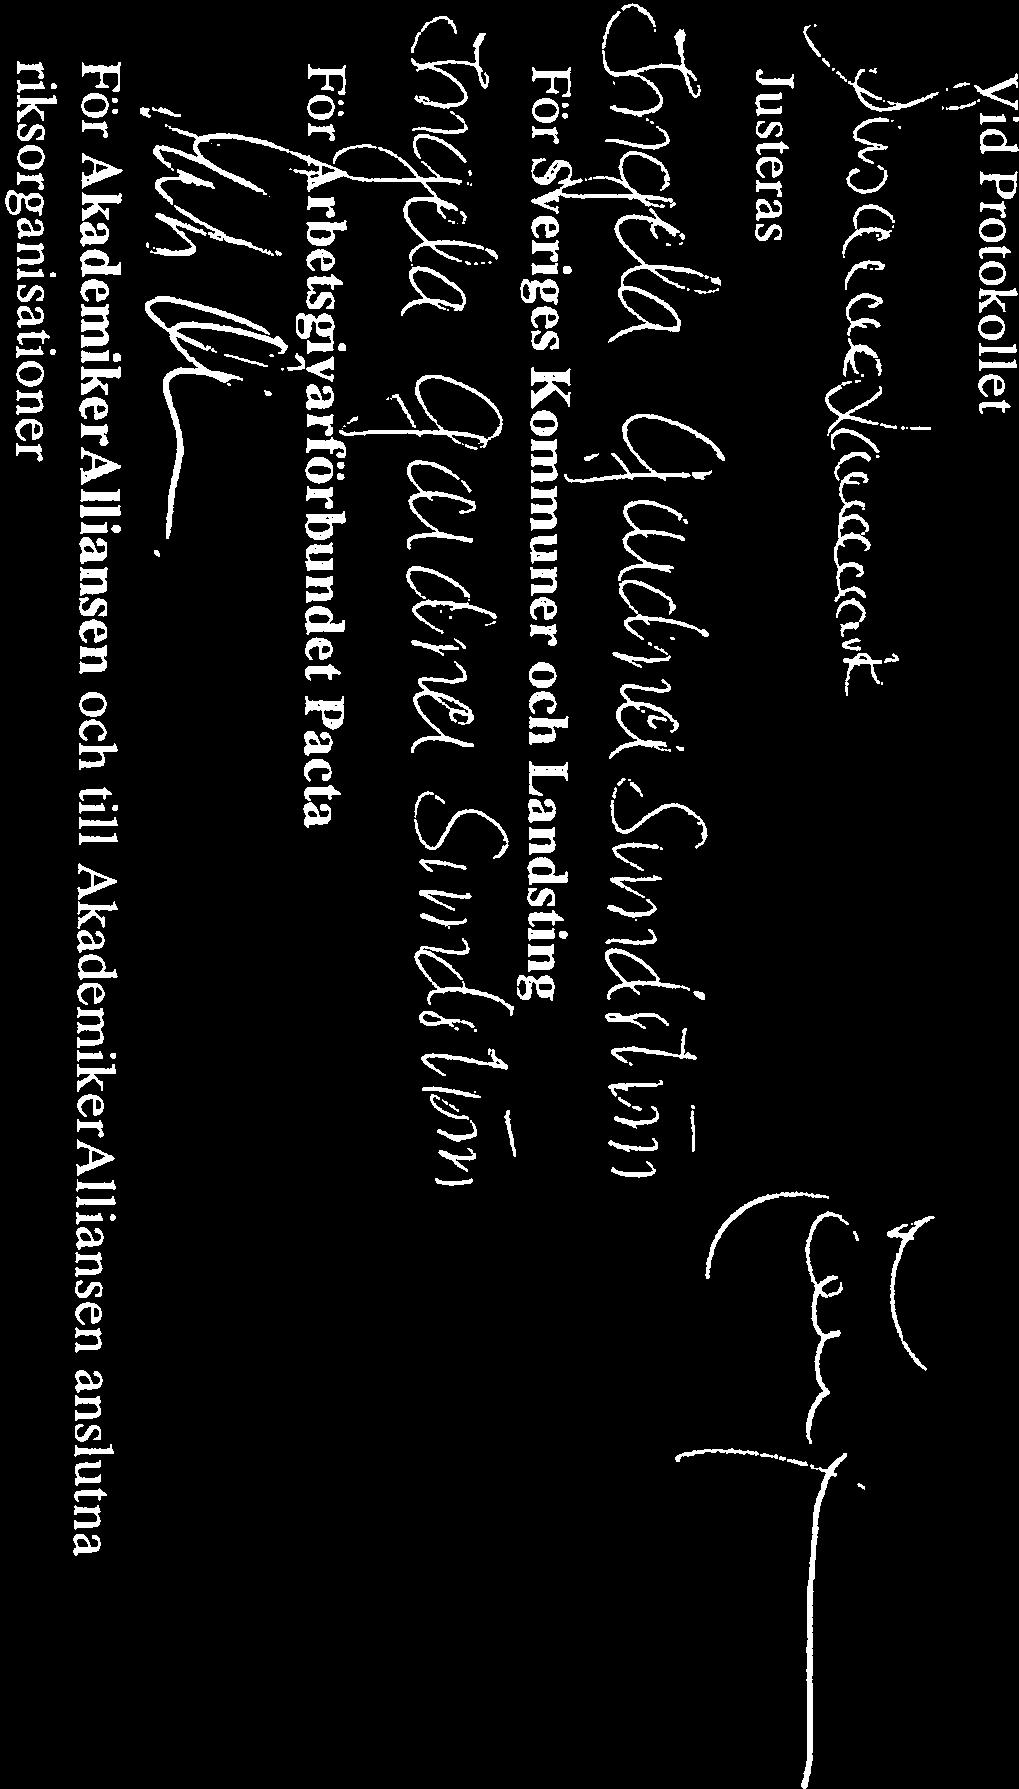 Vid Protokollet
Justeras
Ingela Gardner Sundström
För Sveriges Kommuner och Landsting
Ingela Gardner Sundström
För Arbetsgivarförbundet Pacta
För AkademikerAlliansen och till AkademikerAlliansen anslutna
riksorganisationer